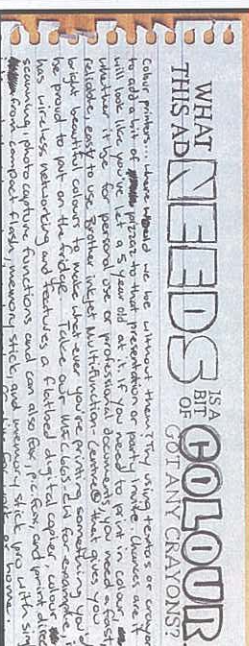 WHAT THIS AD NEEDS IS A BIT OF COLOUR.
GOT ANY CRAYONS?
Colour printers... where would we be without them? Try using textas or crayons
to add a bit of pizzaz to that presentation or party invite. Chances are it
will look like you've let a 5 year old at it. if you need to print in colour,
whether it be for personal use or professional documents, you need a fast,
reliable, easy to use Brother inkjet Multi-Function Centre® that gives you
bright beautiful colours to make whatever you're printing something you'd
be proud to put on the fridge. Take our for example, i
has wireless networking and features a flatbed digital copier, colour
scanning, photo capture functions and can also fax, pc fax, and print direc
from compact flash, memory stick, and memory stick pro with sing
for work or home.